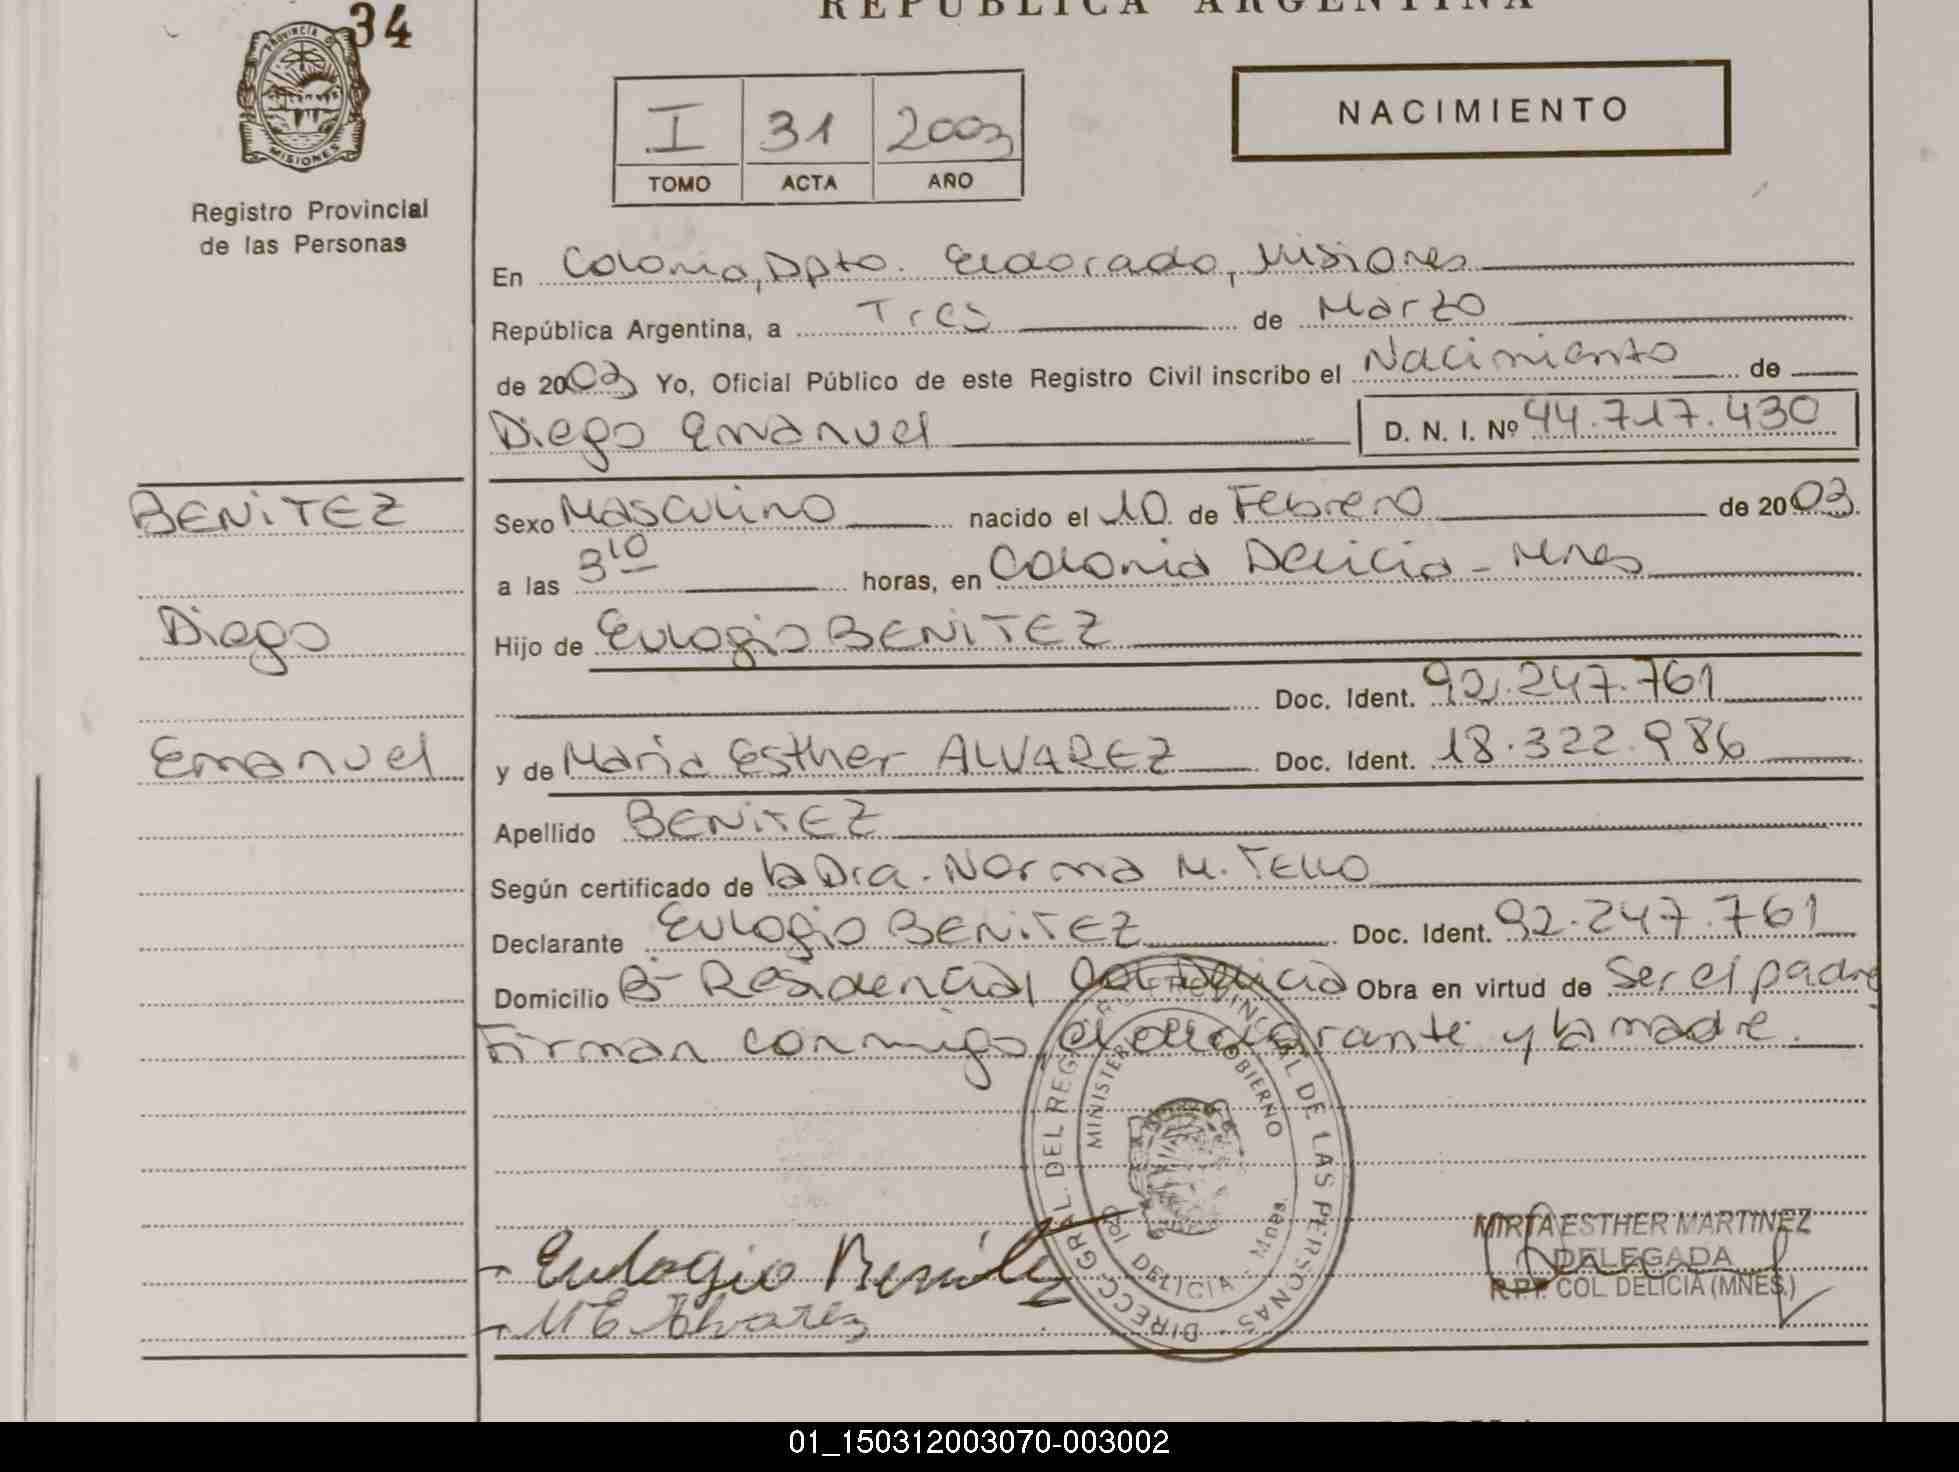 REPUBLICA ARGENTINA
34
PROVINCIA D
MISIONES
Registro Provincial
de las Personas
I 31 2003
TOMO ACTA AÑO
NACIMIENTO
En Colonia, Dpto. Eldorado, Misiones
República Argentina, a Tres de Marzo
de 2003 Yo, Oficial Público de este Registro Civil inscribo el Nacimiento de
Diego Emanuel D. N. I. Nº 44.717.430
BENITEZ
Diego
Emanuel
Sexo Masculino nacido el 10 de Febrero de 2003
a las 3 10 horas, en Colonia Delicia - Mnes
Hijo de Eulogio BENITEZ
Doc. Ident. 92.247.761
y de Maria Esther ALVAREZ Doc. Ident. 18.322.986
Apellido BENITEZ
Según certificado de la Dra. Norma M. Tello
Declarante Eulogio BENITEZ Doc. Ident. 92.247.761
Domicilio Bº Residencial Col Delicia Obra en virtud de Ser el padre
Firman conmigo, el declarante y la madre.
DIRECC. GRAL. DEL REG. PROVINCIAL DE LAS PERSONAS
MINISTERIO GOBIERNO
DELICIA - Mnes.
Eulogio Benítez
M E Alvarez
MIRTA ESTHER MARTINEZ
DELEGADA
R.P.P. COL. DELICIA (MNES.)
01_150312003070-003002